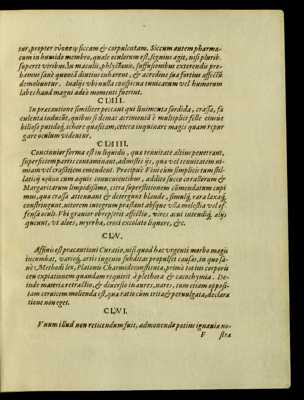 tur, propter πόνους siccam & corpulentam. Siccum autem pharma-
cum in humido membro, quale oculorum est, segnius agit, nisi plurib.
superet viribus. In maculis, phlyctænis, suffusionibus extremum pro-
bamus sanè quoniā diutius inhærent, & acredine sua fortius affectū
demoliuntur. In alijs vbi nulla conspicua tunicarum vel humorum
labes haud magni adeò momenti fuerint.
CLIII.
In præcautione similiter peccant qui linimenta sordida, crassa, fæ
culenta inducūt, quibus si demas acrimoniā è multiplici felle cinere
bilioso putidoq́; stercore quæsitam, cetera inquinare magis quam repur
gare oculum videntur.
CLIIII.
Concinnior forma est in liquidis, qua tenuitate altius penetrant,
superficiem partis contaminant, admistis ijs, qua vel tenuitatem ni-
miam vel crassitiem emendent. Præcipuè si vinum simplicis tum stil-
latitij opticis cum aquis concurrentibus, addito succo corallorum &
Margaritarum limpidissimo, citra superstitionem climendatum cupi
mus, qua crassa attenuant & detergunt blande, simulq́; rara laxaq́;
constringunt, nitorem integrum præstant absque vlla molestia vel of
fensa oculi. Vbi grauior obrepserit affectio, vires arti intendiq́; alijs
queunt, vt aloes, myrrha, croci excolato liquore, &c.
CLV.
Affinis est præcautioni Curatio, nisi quod hac vrgenti morbo magis
incumbat, varioq́; artis ingenio subditas propulset causas, in quo sa-
nè Methodi lex, Platonis Charmide constituta, primò totius corporis
cen expiationem quandam requirit à plethora & cacochymia. De-
inde materiæ retractio, & diuersio in aures, nares, tum etiam opposi-
tam ceruicem molienda est, qua ratio cùm trita & peruulgata, declara
tione non eget.
CLVI.
Vnum illud non reticendum fuit, admonenda potius ignauia no-
F stra